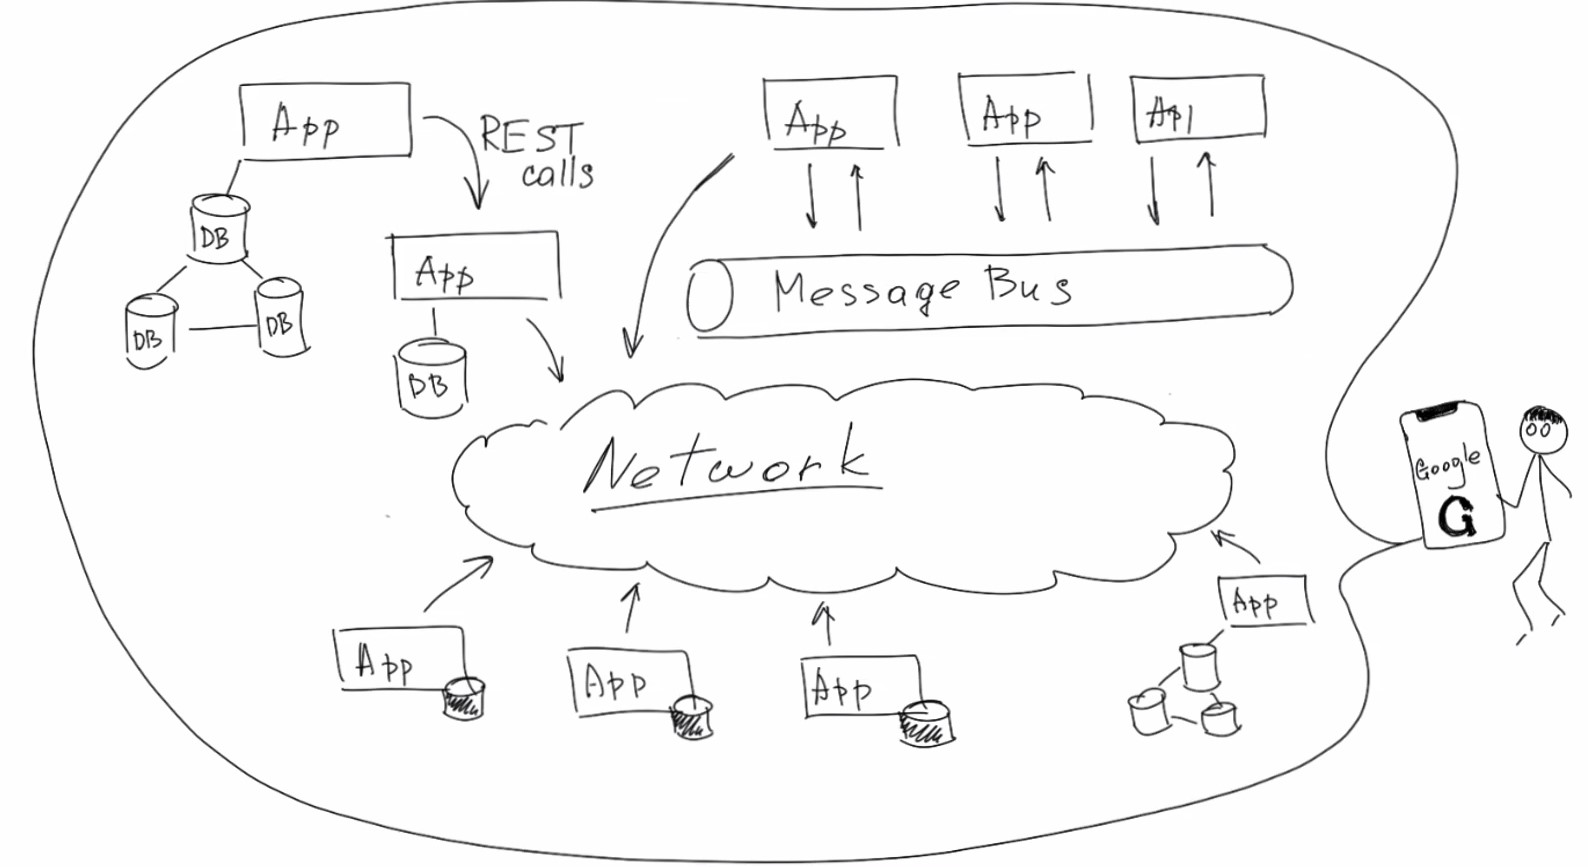 App
REST
calls
DB
DB
DB
App
DB
App
App
Ap
Message Bus
Network
Google
G
App
App
App
App